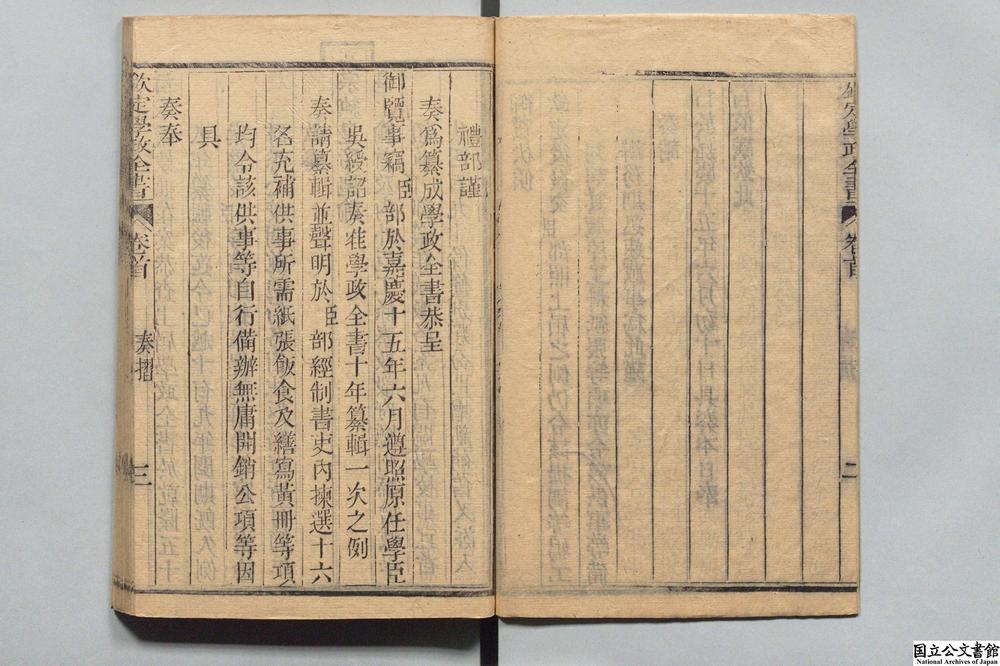 欽定學政全書 卷首 二
禮部謹
奏爲纂成學政全書恭呈
御覽事竊臣部於嘉慶十五年六月遵照原任學臣
吳綬詔奏准學政全書十年纂輯一次之例
奏請纂輯並聲明於臣部經制書吏內揀選十六
名充補供事所需紙張飯食及繕寫黃冊等項
均令該供事等自行備辦無庸開銷公項等因
具
奏奉
欽定學政全書 卷首 奏摺 三
国立公文書館
National Archives of Japan